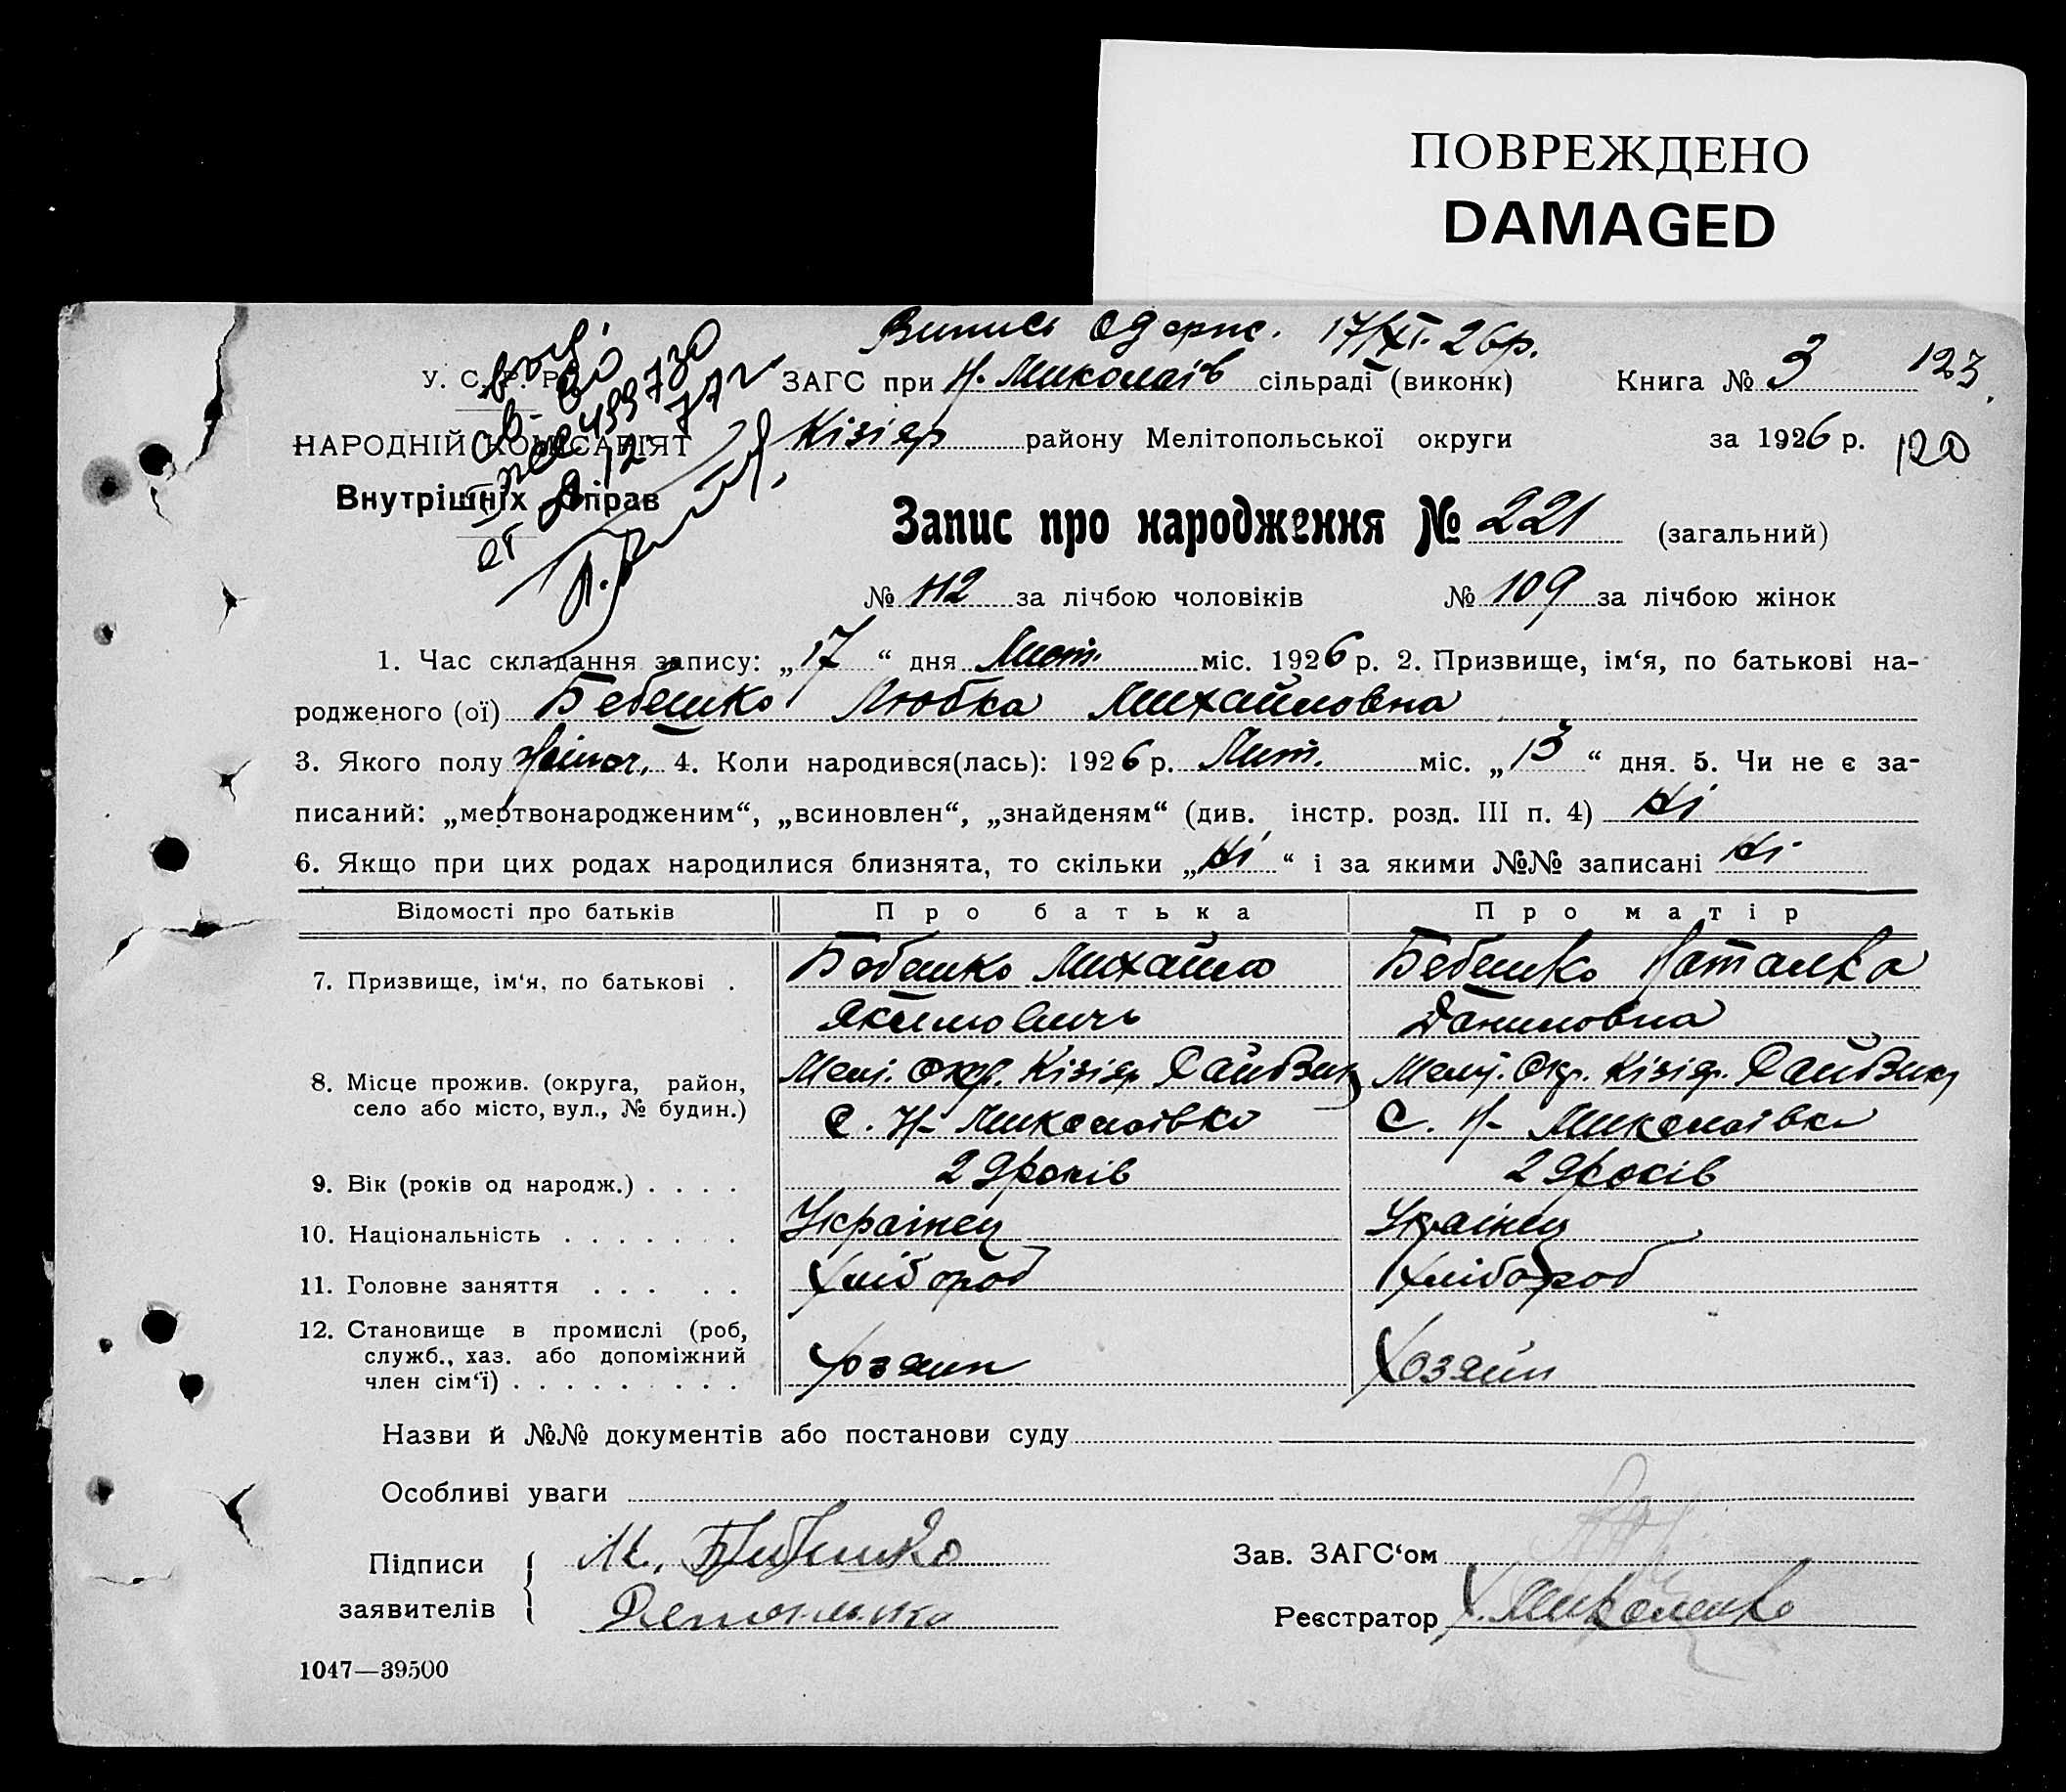 ПОВРЕЖДЕНО
DAMAGED
Випись одерж. 17/XI. 26р.
У. С. Р. Р.
ЗАГС при Н. Миколаїв сільраді (виконк) Книга № 3 123
НАРОДНІЙ КОМІСАРІЯТ
Кізіяр району Мелітопольської округи за 1926 р. 120
Внутрішніх Справ
Запис про народження № 221 (загальний)
№ 112 за лічбою чоловіків № 109 за лічбою жінок
1. Час складання запису: „17“ дня Лист. міс. 1926 р. 2. Призвище, ім‘я, по батькові на-
родженого (ої) Бебешко Любка Михайловна
3. Якого полу жіноч. 4. Коли народився(лась): 1926 р. Лист. міс. „13“ дня. 5. Чи не є за-
писаний: „мертвонародженим“, „всиновлен“, „знайденям“ (див. інстр. розд. III п. 4) Ні
6. Якщо при цих родах народилися близнята, то скільки „Ні“ і за якими №№ записані Ні
Відомості про батьків Про батька Про матір
7. Призвище, ім‘я, по батькові . Бебешко Михайло Бебешко Наталка
Якимович Даниловна
8. Місце прожив. (округа, район, Мелі. Окр. Кізіяр Меліт. Окр. Кізіяр.
село або місто, вул., № будин.) С. Н- Миколаівка С. Н- Миколаівка
9. Вік (років од народж.) . . . . 29 років 29 років
10. Національність . . . . . . . Українец Українец
11. Головне заняття . . . . . Хлібороб Хлібороб
12. Становище в промислі (роб,
служб., хаз. або допоміжний Хозяин Хозяйн
член сім‘ї) . . . . . . . . .
Назви й №№ документів або постанови суду
Особливі уваги
Підписи М. Бебешко Зав. ЗАГС‘ом
заявителів Реєстратор
1047—39500